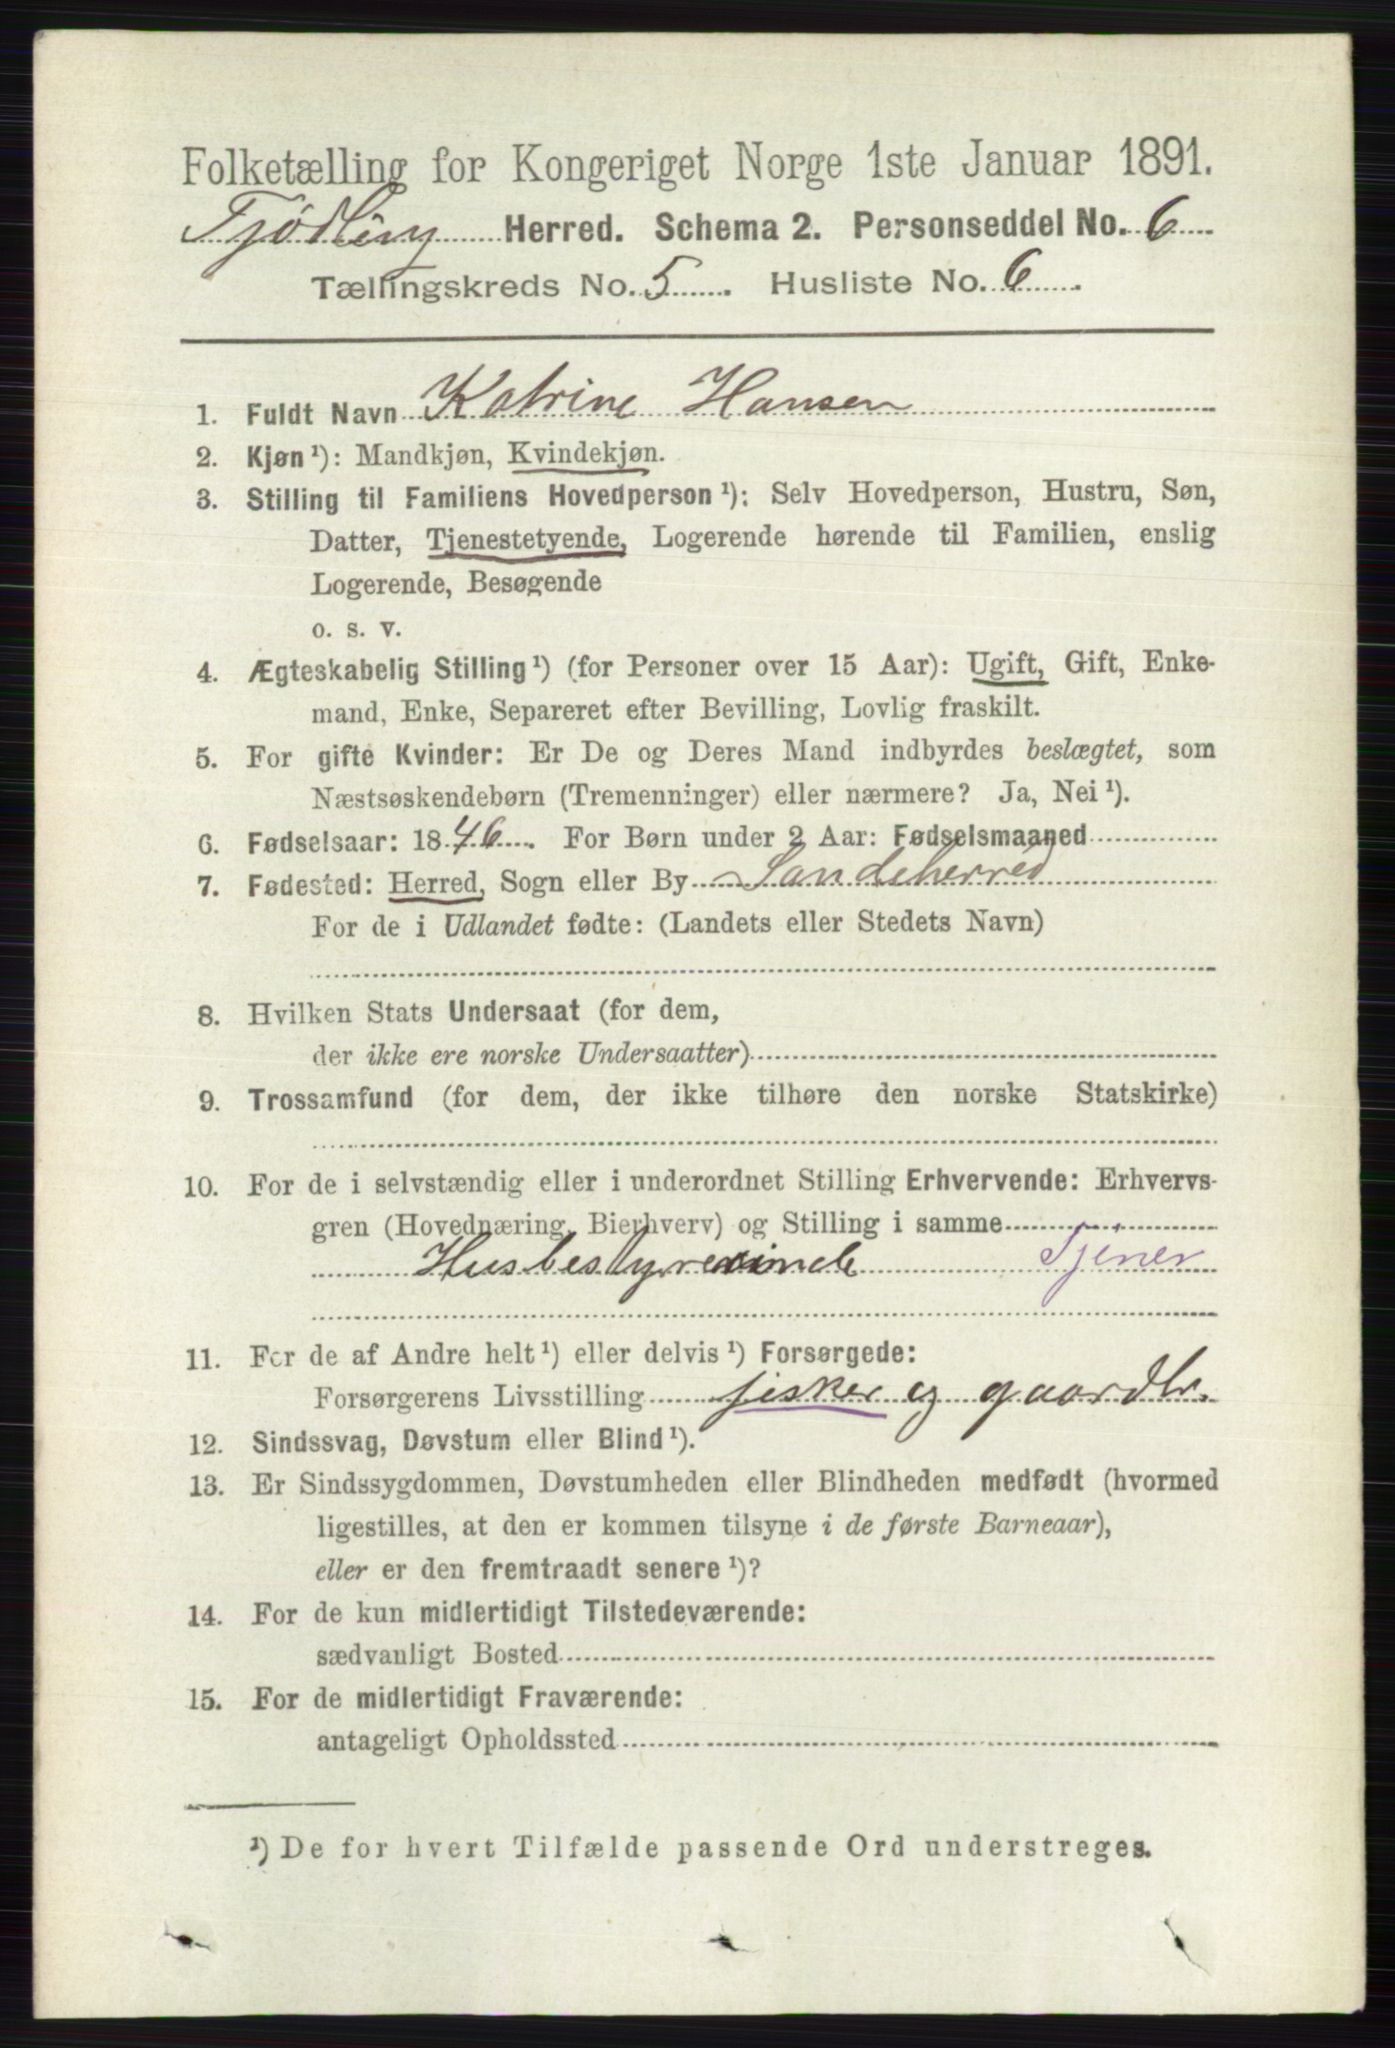 Folketælling for Kongeriget Norge 1ste Januar 1891.
Tjødling Herred. Schema 2. Personseddel No. 6
Tællingskreds No. 5. Husliste No. 6.
1. Fuldt Navn Katrine Hansen
2. Kjøn ¹): Mandkjøn, Kvindekjøn.
3. Stilling til Familiens Hovedperson ¹): Selv Hovedperson, Hustru, Søn,
Datter, Tjenestetyende, Logerende hørende til Familien, enslig
Logerende, Besøgende
o. s. v.
4. Ægteskabelig Stilling ¹) (for Personer over 15 Aar): Ugift, Gift, Enke-
mand, Enke, Separeret efter Bevilling, Lovlig fraskilt.
5. For gifte Kvinder: Er De og Deres Mand indbyrdes beslægtet, som
Næstsøskendebørn (Tremenninger) eller nærmere? Ja, Nei ¹).
6. Fødselsaar: 1846. For Børn under 2 Aar: Fødselsmaaned
7. Fødested: Herred, Sogn eller By Sandeherred
For de i Udlandet fødte: (Landets eller Stedets Navn)
8. Hvilken Stats Undersaat (for dem,
der ikke ere norske Undersaatter)
9. Trossamfund (for dem, der ikke tilhøre den norske Statskirke)
10. For de i selvstændig eller i underordnet Stilling Erhvervende: Erhvervs-
gren (Hovednæring, Bierhverv) og Stilling i samme
Husbestyrerinde Tjener
11. For de af Andre helt ¹) eller delvis ¹) Forsørgede:
Forsørgerens Livsstilling fisker og gaardbr.
12. Sindssvag, Døvstum eller Blind ¹).
13. Er Sindssygdommen, Døvstumheden eller Blindheden medfødt (hvormed
ligestilles, at den er kommen tilsyne i de første Barneaar),
eller er den fremtraadt senere ¹)?
14. For de kun midlertidigt Tilstedeværende:
sædvanligt Bosted
15. For de midlertidigt Fraværende:
antageligt Opholdssted
¹) De for hvert Tilfælde passende Ord understreges.